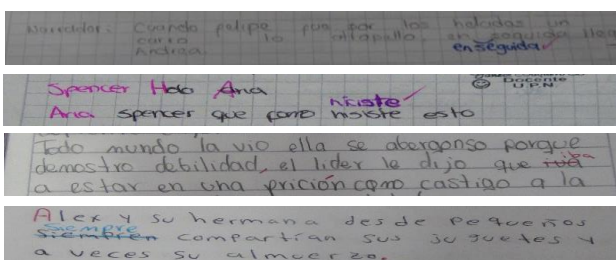 Narrador: Cuando felipe fue por los helados un
carro lo atropello en seguida lleg
Andrea. enseguida.
Spencer Holo Ana
Docente
U.P.N.
hiciste
Ana spencer que como hisiste esto
Todo mundo la vio ella se abergonso porque
demostro debilidad, el lider le dijo que iva iba
a estar en una prición como castigo a la
Alex y su hermana desde pequeños
siempre
siempren compartían sus juguetes y
a veces su almuerzo.